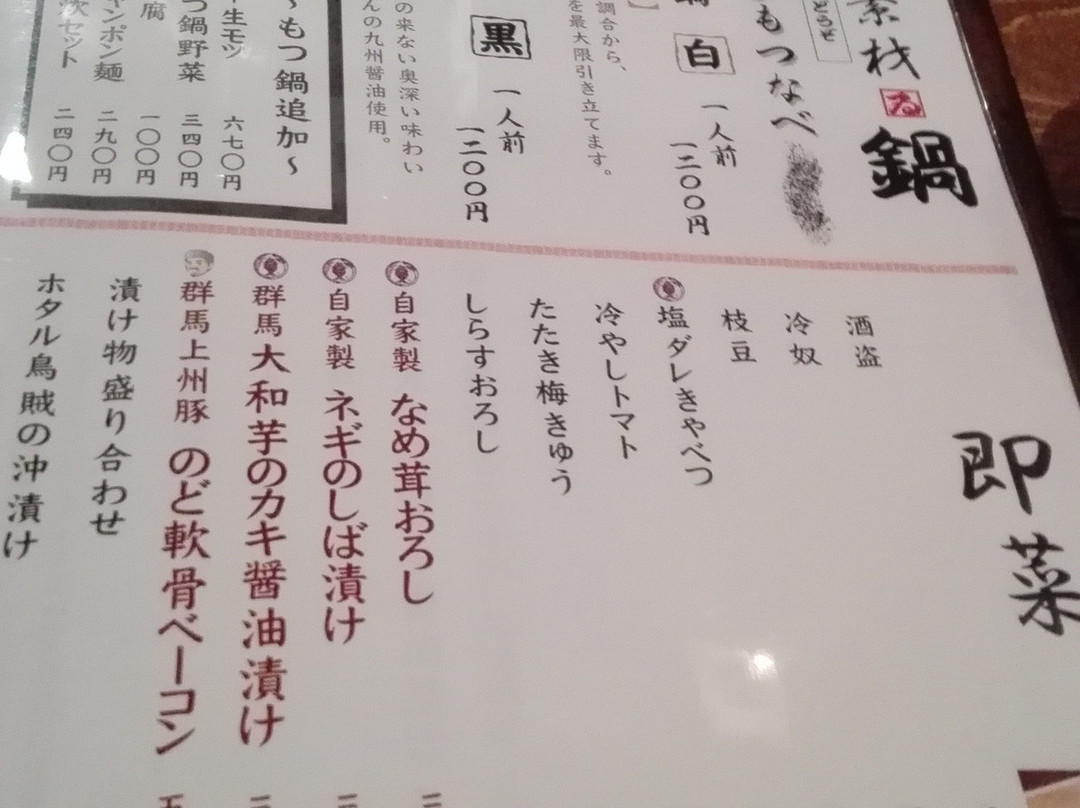 素材
鍋
どうぞ
もつなべ
白 一人前
一二〇〇円
調合から、
を最大限引き立てます。
黒 一人前
一二〇〇円
の来ない奥深い味わい
んの九州醤油使用。
〜もつ鍋追加〜
生モツ 六七〇円
つ鍋野菜 三四〇円
腐 一〇〇円
ャンポン麺 二九〇円
炊セット 二四〇円
即菜
酒盗
冷奴
枝豆
塩ダレきゃべつ
冷やしトマト
たたき梅きゅう
しらすおろし
自家製 なめ茸おろし
自家製 ネギのしば漬け
群馬大和芋のカキ醤油漬け
群馬上州豚 のど軟骨ベーコン
漬け物盛り合わせ
ホタル烏賊の沖漬け